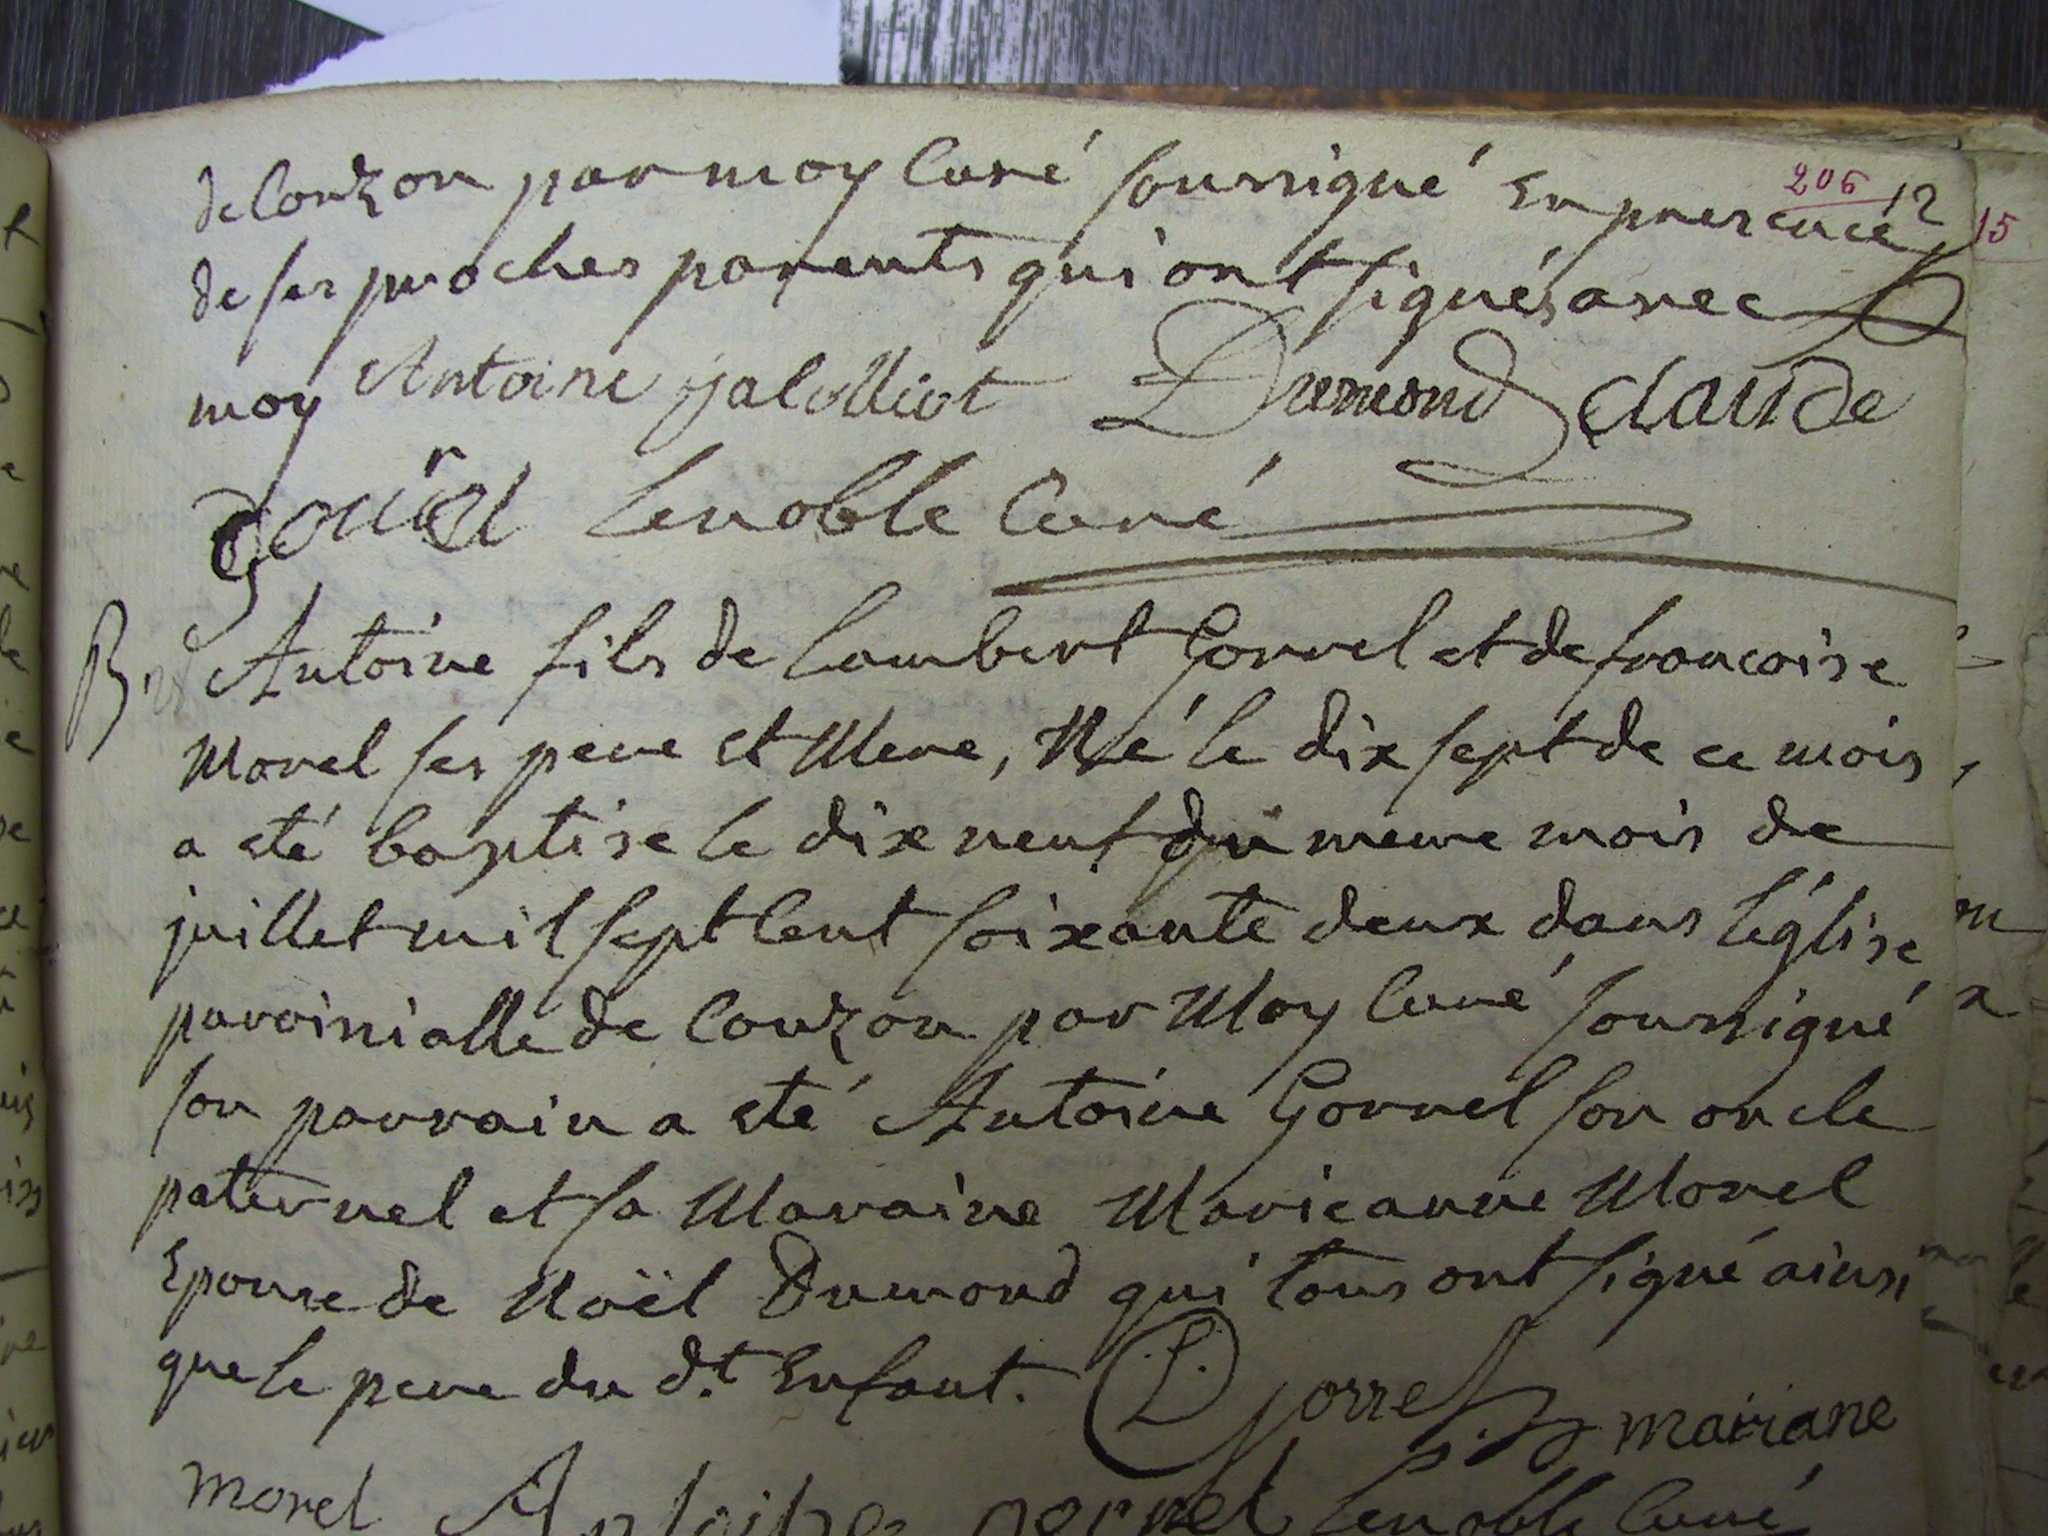 de Couzon par moy Curé soussigné En presence
206 12
15
de ses proches parents qui ont signés avec
moy Antoine jalolliot Dumond claude
gouïrd Lenoble Curé
B Antoine fils de Lambert Gorrel et de francoise
Morel ses pere et Mere, Né le dix sept de ce mois,
a eté baptise le dix neuf du meme mois de
juillet mil sept Cent soixante deux dans l'église
paroissialle de Couzon par Moy Curé soussigné
son parrain a eté Antoine Gorrel son oncle
paternel et sa Maraine Marieanne Morel
Epouse de Noël Dumond qui tous ont signé ainsi
que le pere du d.t Enfant. L. gorrel mariane
morel Antoine gorrel Lenoble Curé